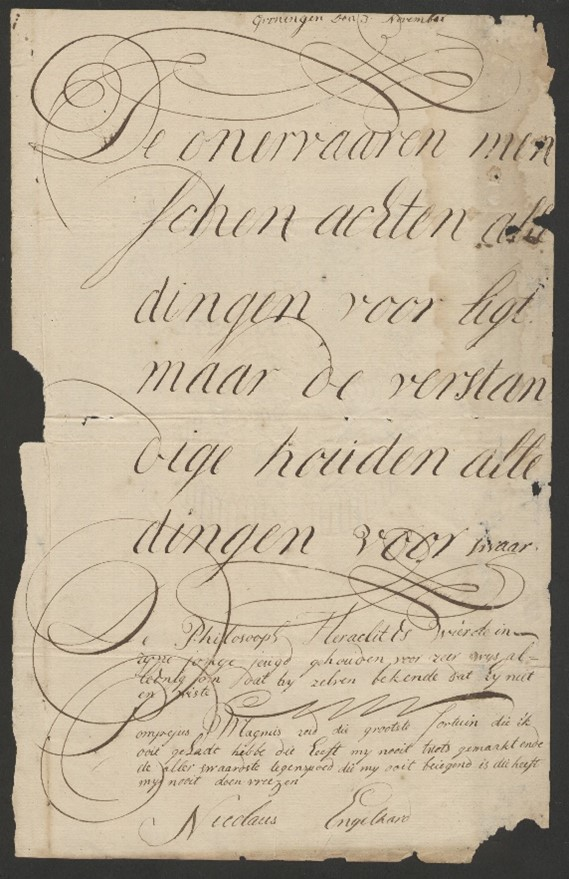 Groningen Den 3 November
De onervaaren men
schen achten alle
dingen voor ligt
maar de verstan
dige houden alle
dingen voor swaar.
De Philosooph Heraclitus wierde in
zyne jonge jeugd gehouden voor zeer wys al-
leenig om dat hy zelven bekende dat hy niet
en wiste
ompejus Magnus zeid die grootste fortuin die ik
ooit gehadt hebbe die heeft my nooit troots gemaakt ende
de aller swaarste tegenspoed die my ooit bejegend is die heeft
my nooit doen vreezen
Nicolaus Engelhard